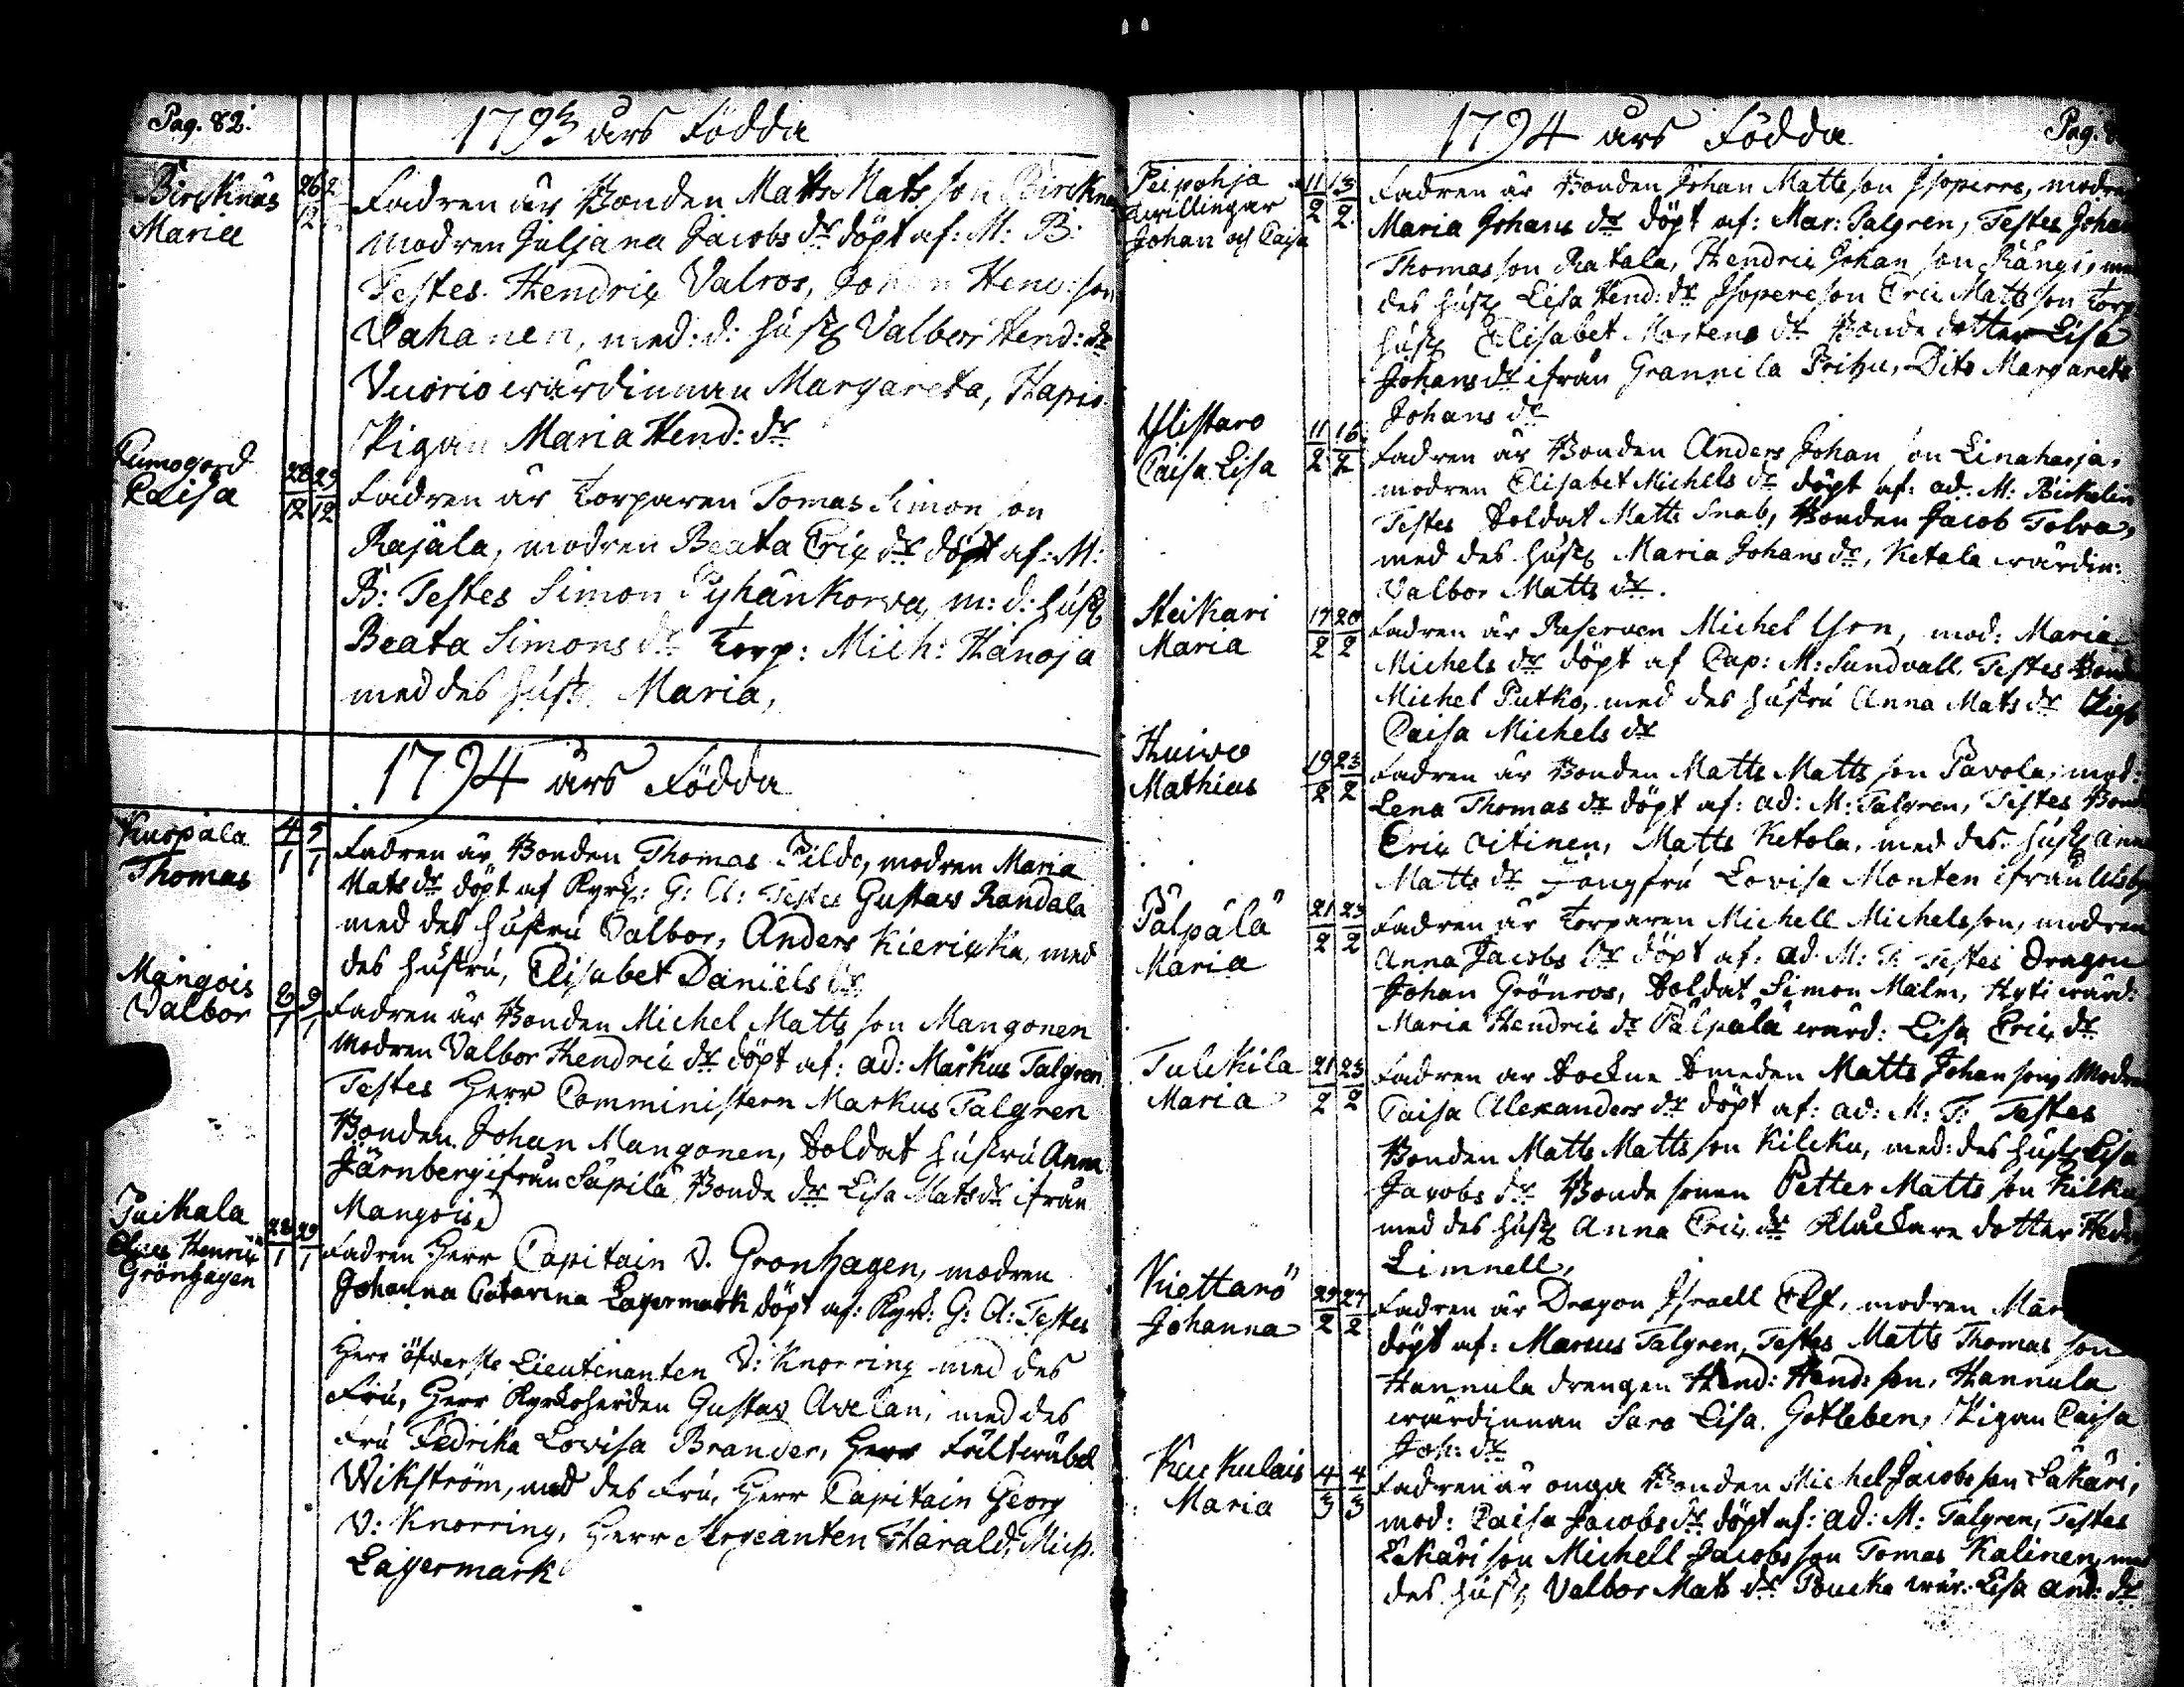 Pag. 82.
1793 års Födda
Bircknäs
Maria
26 2
12
Fadren är Bonden Matts Mats son Birckn
modren Juljana Jacobs dr döpt af: M: B:
Testes. Hendrix Valros, Johan Hend: son
Vahanen, med: d: husf Valbor Hend: dr
Vuorio wärdinnan Margareta, Hapio
Pigan Maria Hend: dr
Cumogord
Caisa
28 29
12 12
Fadren är Torparen Tomas Simon son
Rajala, modren Beata Erix dr döpt af: M:
B: Testes Simon Pyhänkorva, m: d: husf
Beata Simons dr Torp: Mich: Hanoja
med des husf Maria,
1794 års Födda
Kuopala
Thomas
4 5
1 1
Fadren är Bonden Thomas Pildo, modren Maria
Mats dr döpt af Kyrk: G: A: Testes Gustav Randala
med des hustru Valbor, Anders Kiericka, med
des hustru, Elisabet Daniels dr
Mangois
Valbor
6 9
1 1
Fadren är Bonden Michel Matts son Mangonen
modren Valbor Hendric dr döpt af: ad: Markus Talgren
Testes Herr Comministern Markus Talgren
Bonden Johan Mangonen, Soldat hustru Anna
Järnberg ifrån Säpilä, Bonde dr Lisa Mats dr ifrån
Mangois
Puikala
Claes Henric
Grönhagen
28 29
1 1
Fadren Herr Capitain V. Gronhagen, modren
Johanna Catarina Lagermark döpt af: Kyrk: G: A: Testes
Herr öfverste Lieutenanten V: Knorring med des
Fru, Herr Kyrkoherden Gustav Avelan, med des
Fru Fedrika Lovisa Brander, Herr Fältwäbel
Wikström, med des Fru, Herr Capitain Georg
V: Knorring, Herr Sergeanten Harald, Mich.
Lagermark
1794 års Födda
Pag.
Peipohja
twillingar
Johan och Caisa
11 13
2 2
Fadren är Bonden Johan Matts son Isoperre, modren
Maria Johans dr döpt af: Mar: Talgren, Testes Johan
Thomas son Ratala, Hendric Johan son Rängi,
des husf Lisa Hend: dr Isopere son Eric Matts son Torp
husf Elisabet Mortens dr Bonde dotter Lisa
Johans dr ifrån Grannila Prihu, Dito Margareta
Johans dr
Ylistaro
Caisa Lisa
11 16
2 2
Fadren är Bonden Anders Johan son Linaharja,
modren Elisabet Michels dr döpt af: ad: M: Birkelin
Testes Soldat Matts Snab, Bonden Jacob Tolva,
med des husf Maria Johans dr, Ketala wärdin:
Valbor Matts dr.
Steikari
Maria
17 20
2 2
Fadren är Reserven Michel Yrn, mod: Maria
Michels dr döpt af Cap: M: Sundvall Testes Bonde
Michel Putko, med des hustru Anna Mats dr Pig
Caisa Michels dr
Huivo
Mathias
19 23
2 2
Fadren är Bonden Matts Matts son Pavola, mod:
Lena Thomas dr döpt af: ad: M: Talgren, Testes Bond
Eric Oitinen, Matts Ketola, med des husf Anna
Matts dr Jongfru Lovisa Monten ifrån
Pälpälä
Maria
21 23
2 2
Fadren är Torparen Michell Michels son, modren
Anna Jacobs dr döpt af: ad: M: T: Testes Dragon
Johan Grönros, Soldat Simon Malm, Hyti wärd:
Maria Hendric dr Pälpälä wärd: Lisa Eric dr
Tulkkila
Maria
21 23
2 2
Fadren är Sockne Smeden Matts Johan son, Modren
Caisa Alexanders dr döpt af: ad: M: T: Testes
Bonden Matts Matts son Kilcku, med: des husf Lisa
Jacobs dr Bonde sonen Petter Matts son Kilku
med des husf Anna Eric dr Kläckare dotter
Limnell,
Kiettarö
Johanna
27
2 2
Fadren är Dragon Israell Elf, modren Mar
döpt af: Marcus Talgren, Testes Matts Thomas son
Hannula drengen Hend: Hend: son, Hannula
wärdinnan Sara Lisa. Gotleben, Pigan Caisa
Joh: dr
Kuckulais
Maria
4 4
3 3
Fadren är onga Bonden Michel Jacobs son Lakari,
mod: Caisa Jacobs dr döpt af: ad: M: Talgren, Testes
Lakari son Michell Jacobs son Tomas Kalinen, med
des husf Valbor Mats dr Poucka wär: Lisa And: dr